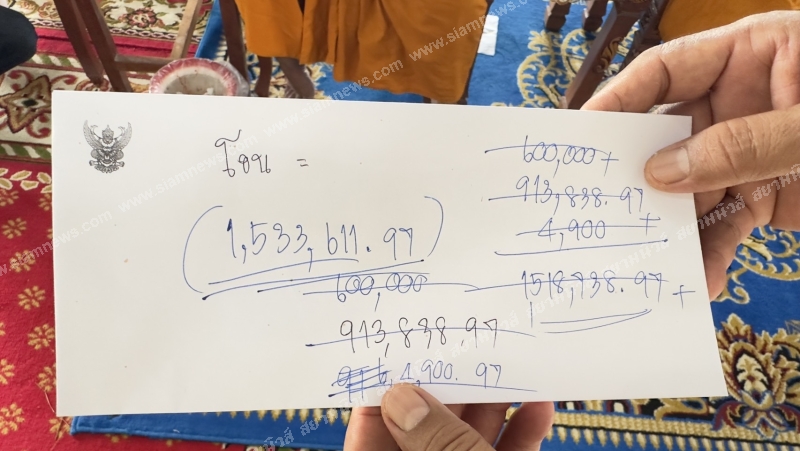 โอน =
(1,533,611.97)
600,000
913,838.97
4,900.97
600,000+
913,838.97
4,900 +
1518,738.97 +
www.siamnews.com
สยามนิวส์